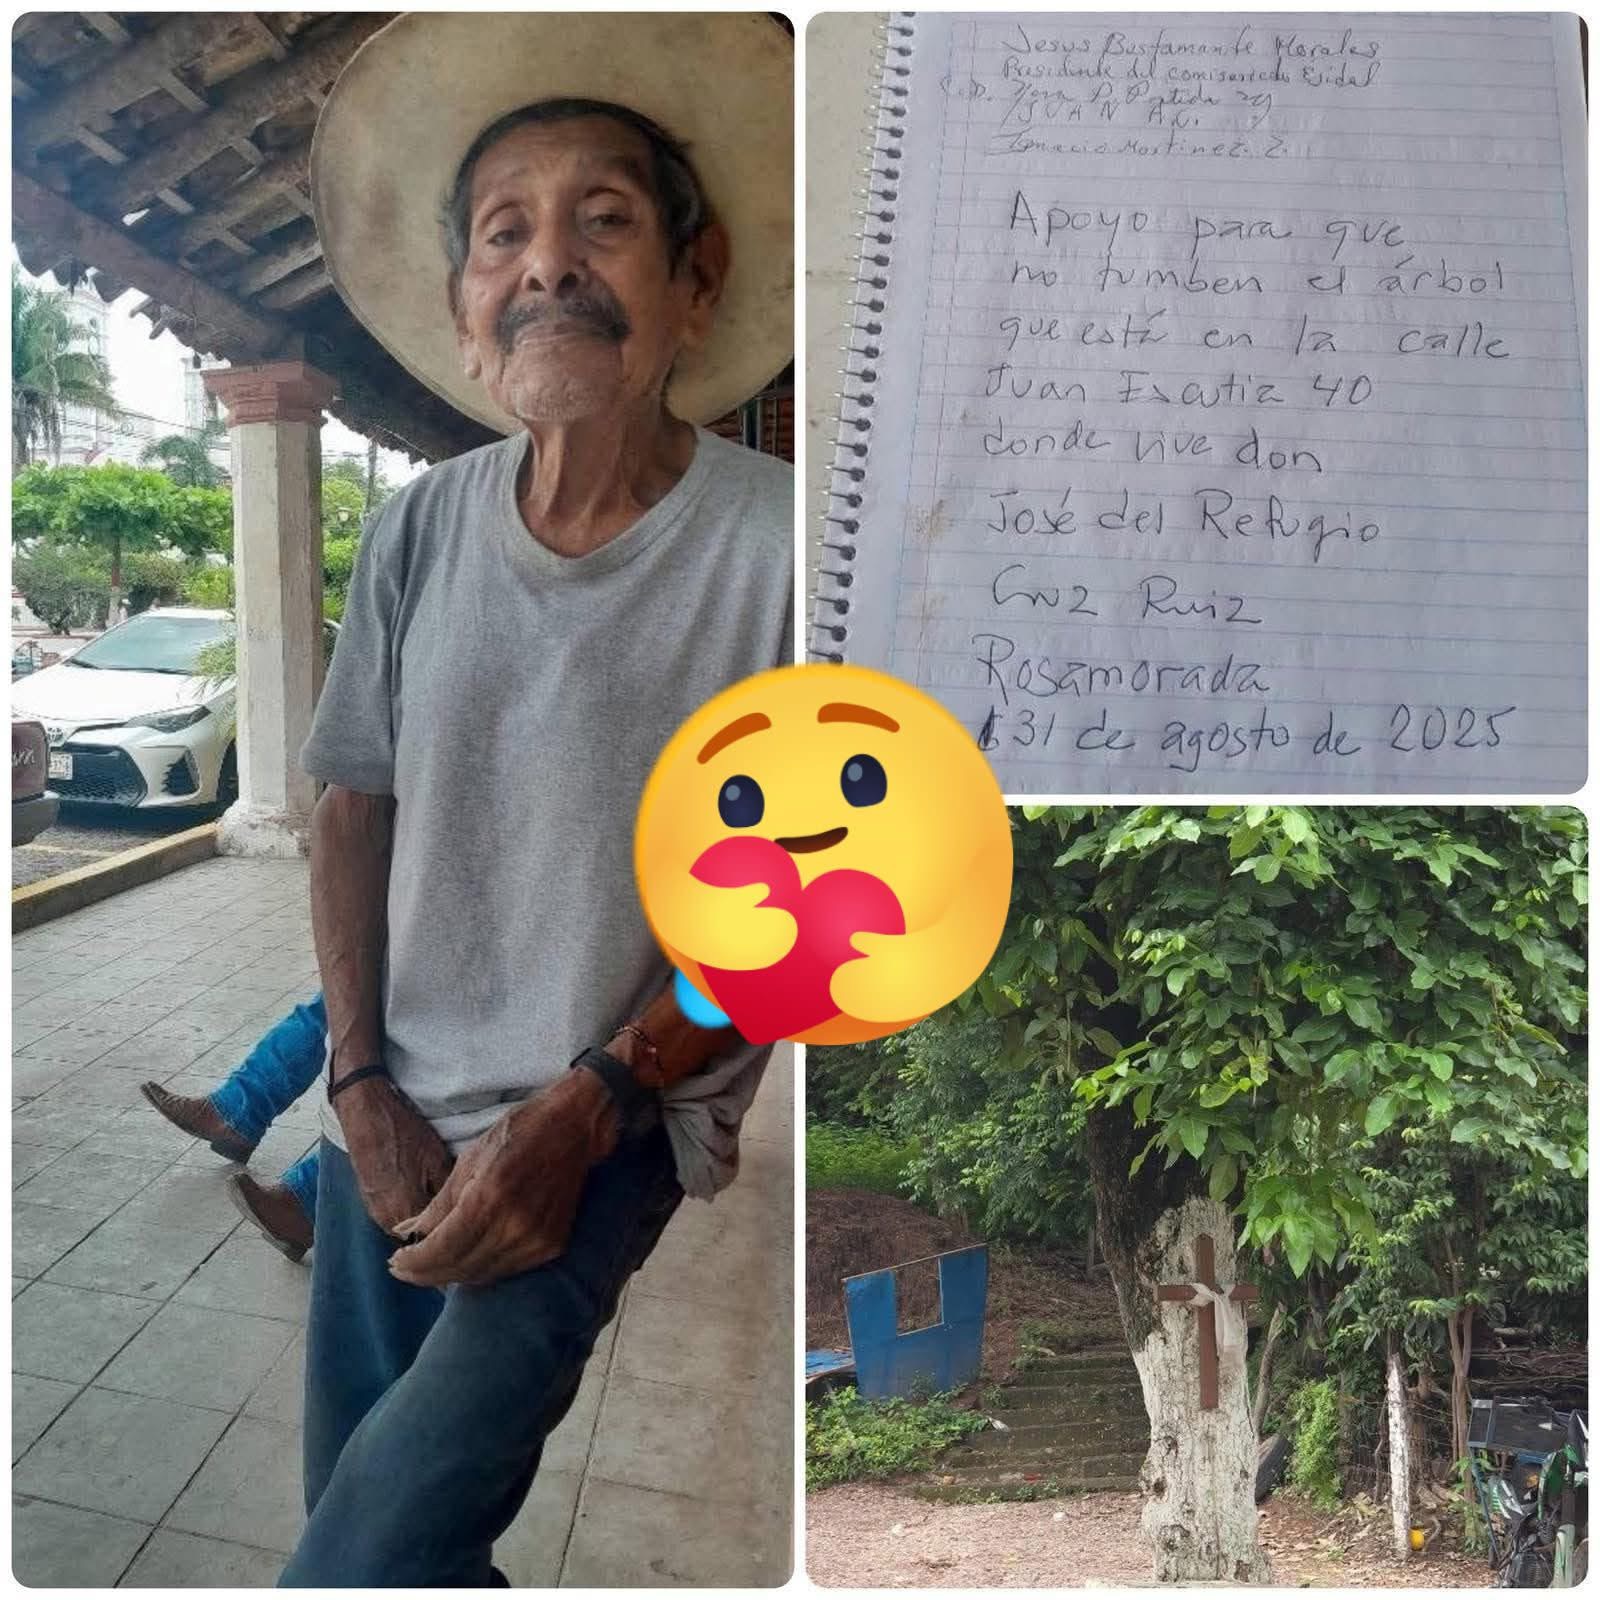 Jesus Bustamante Morales
Presidente del comisariado Ejidal
JUAN
Ignacio Martinez. Z.
Apoyo para que
no tumben el árbol
que está en la calle
Juan Escutia 40
donde vive don
José del Refugio
Cruz Ruiz
Rosamorada
31 de agosto de 2025